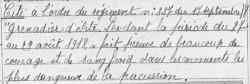 Cité à l'ordre du régiment n° 137 du 17 septembre
"Grenadier d'élite. Pendant la période du 27
au 29 août 1918 a fait preuve de beaucoup de
courage et de sang froid dans les moments les
plus dangereux de la